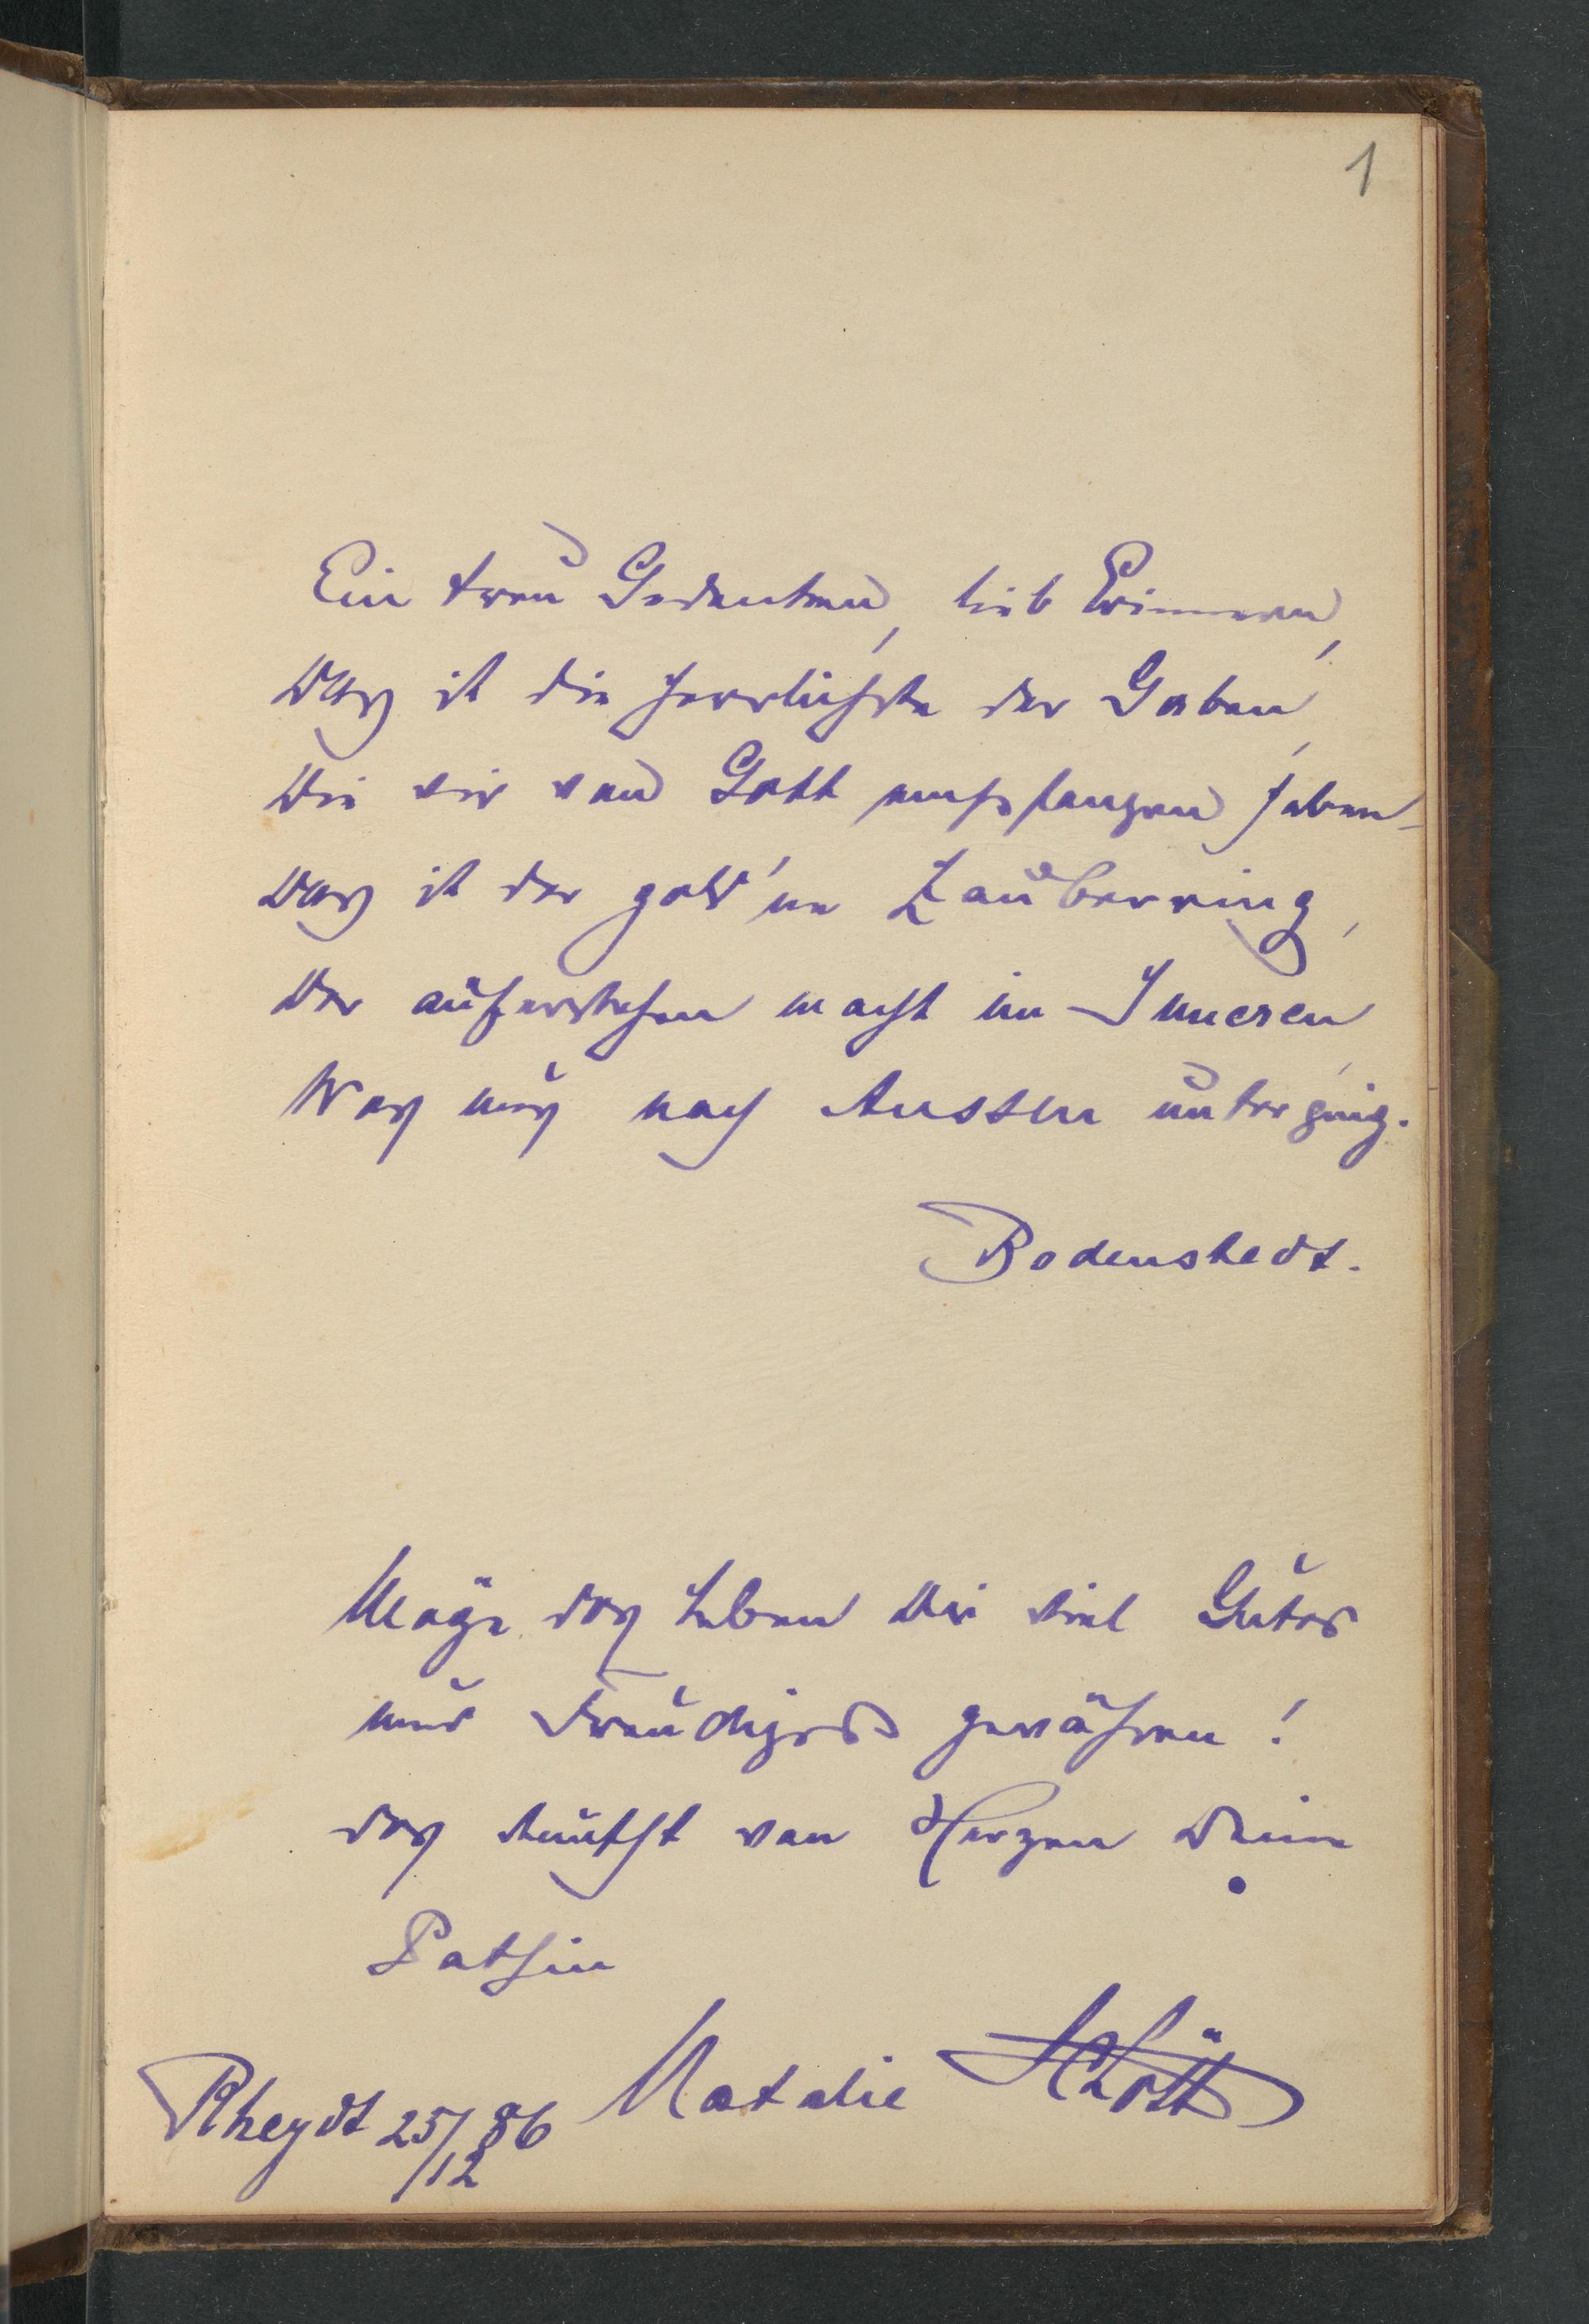 1
Ein treu Gedenken, lieb Erinnern,
Das ist die herrlichste der Gaben,
Die wir von Gott empfangen haben –
Das ist der gold'ne Zauberring,
Der auferstehen macht im Inneren,
Was uns nach Aussen unterging.
Bodenstedt.
Möge das Leben Dir viel Gutes
und Freudiges gewähren!
das wünscht von Herzen Deine
Pathin
Natalie
Rheydt 25/12 86